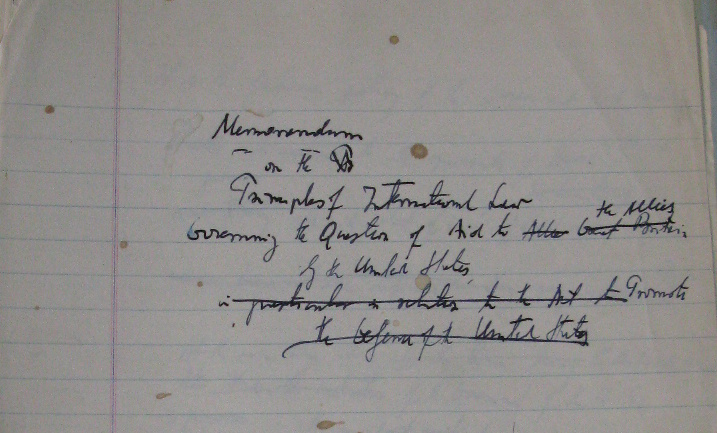 Memorandum
on the
Principles of International Law
the Allies
Governing the Question of Aid to Allies Great Britain
by the United States
in particular in relation to the Act to Promote
the Defense of the United States